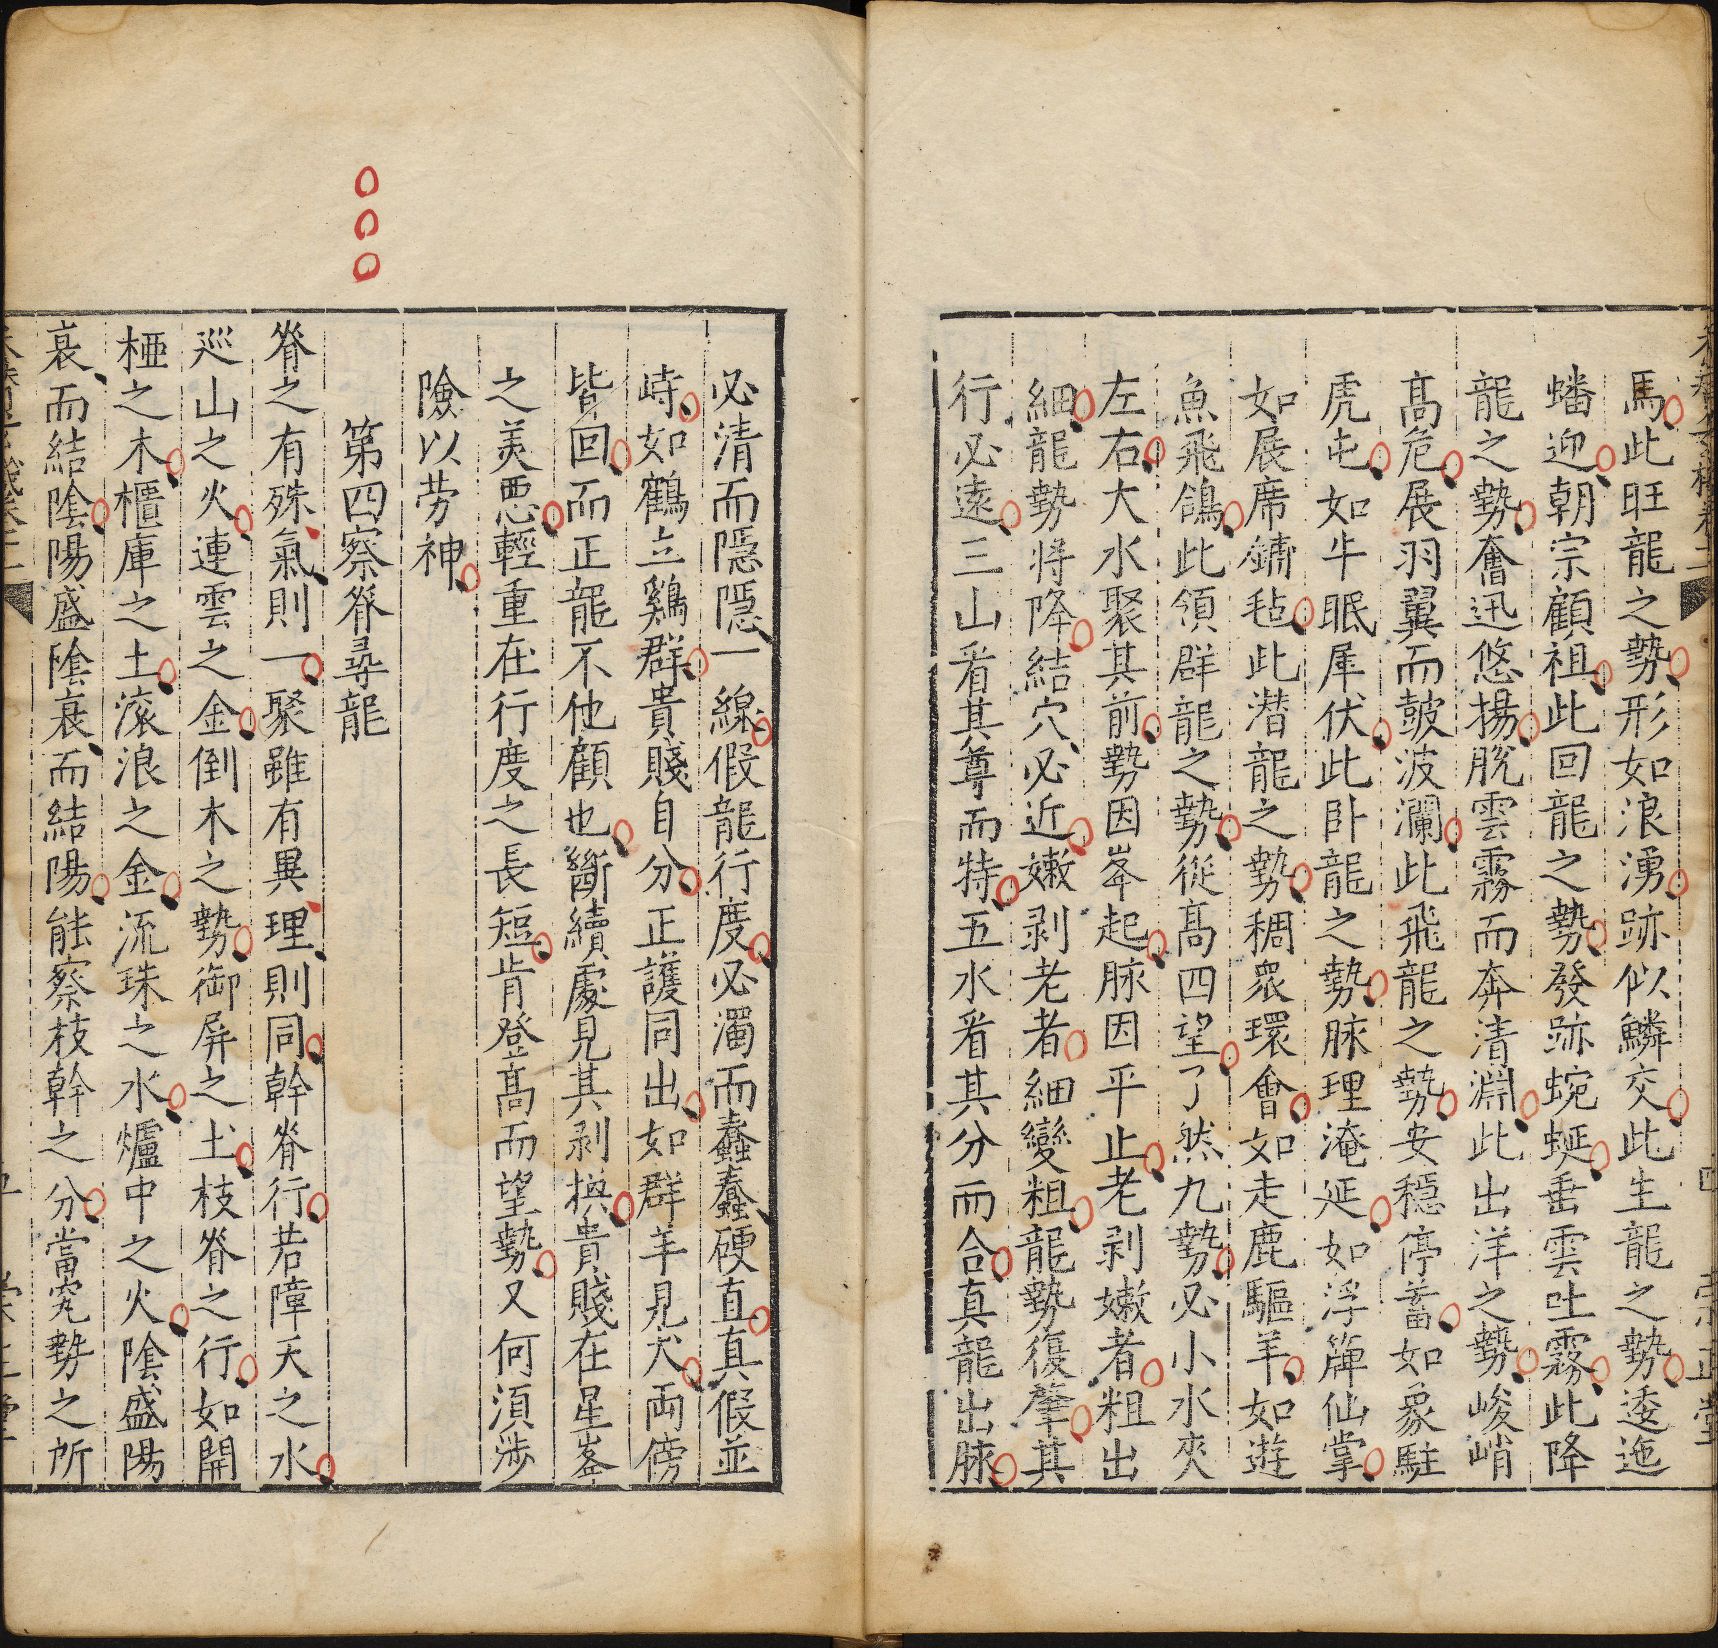 馬此旺龍之勢形如浪湧跡似鱗交此生龍之勢逶迤
蟠迎朝宗顧祖此回龍之勢發跡蜿蜒垂雲吐霧此降
龍之勢奮迅悠揚脫雲霧而奔清淵此出洋之勢峻峭
髙危展羽翼而皷波瀾此飛龍之勢安穩停蓄如象駐
虎屯如牛眠犀伏此卧龍之勢脉理淹延如浮簰仙掌
如展席鋪毡此潜龍之勢稠衆環會如走鹿驅羊如遊
魚飛鴿此領群龍之勢從髙四望了然九勢必小水夾
左右大水聚其前勢因峯起脉因平止老剥嫩者粗出
細龍勢将降結穴必近嫩剥老者細變粗龍勢復肇其
行必遠三山看其尊而特五水看其分而合真龍出脉
必清而隱隱一線假龍行度必濁而蠢蠢硬直真假並
峙如鶴立鷄群貴賤自分正護同出如群羊見犬両傍
皆回而正龍不他顧也斷續處見其剥換貴賤在星峯
之美惡輕重在行度之長短肯登髙而望勢又何湏涉
險以劳神
第四察脊尋龍
脊之有殊氣則一聚雖有異理則同幹脊行若障天之水
巡山之火連雲之金倒木之勢御屏之土枝脊之行如開
櫃庫之土滚浪之金流珠之水爐中之火陰盛陽
衰而結陰陽盛陰衰而結陽能察枝幹之分當究勢之所